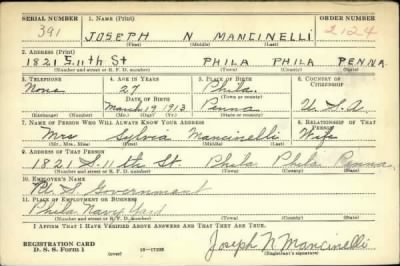 SERIAL NUMBER 1. NAME (Print) ORDER NUMBER
391 JOSEPH N MANCINELLI 2124
(First) (Middle) (Last)
2. ADDRESS (Print)
1821 S. 11 th St PHILA PHILA PENNA.
(Number and street or R. F. D. number) (Town) (County) (State)
3. TELEPHONE 4. AGE IN YEARS 5. PLACE OF BIRTH 6. COUNTRY OF CITIZENSHIP
None 27 Phila.
DATE OF BIRTH (Town or county)
March 19 1913 Penna U.S.A.
(Exchange) (Number) (Mo.) (Day) (Yr.) (State or country)
7. NAME OF PERSON WHO WILL ALWAYS KNOW YOUR ADDRESS 8. RELATIONSHIP OF THAT PERSON
Mrs Sylvia Mancinelli Wife
(Mr., Mrs., Miss) (First) (Middle) (Last)
9. ADDRESS OF THAT PERSON
1821 S. 11 th St. Phila Phila Penna.
(Number and street or R. F. D. number) (Town) (County) (State)
10. EMPLOYER'S NAME
S. Government
11. PLACE OF EMPLOYMENT OR BUSINESS
Phila Navy Yard
(Number and street or R. F. D. number) (Town) (County) (State)
I AFFIRM THAT I HAVE VERIFIED ABOVE ANSWERS AND THAT THEY ARE TRUE.
REGISTRATION CARD
D. S. S. Form 1 (over) Joseph N Mancinelli
(Registrant's signature)